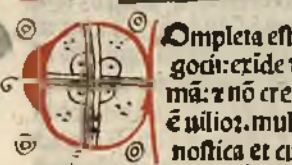 Completa eſt
gocii: exide
mã: ⁊ nõ cre
ẽ uilior. mul
noſtica et cu